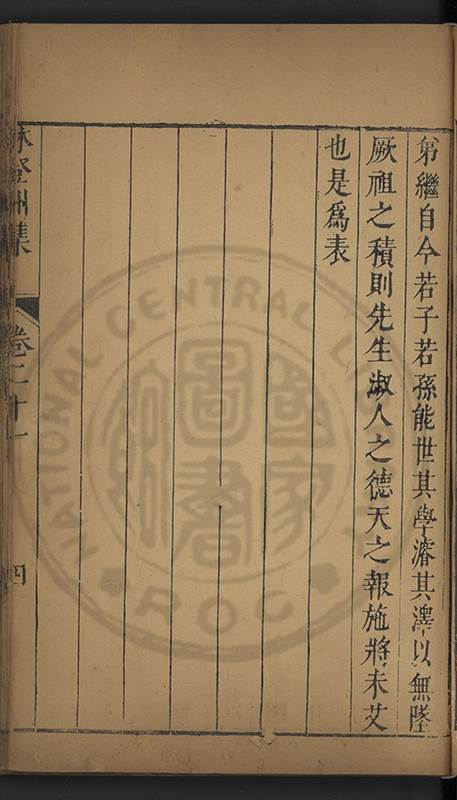 第繼自今若子若孫能世其學濬其澤以無墜
厥祖之積則先生淑人之德天之報施將未艾
也是為表
林登州集
卷二十一
四
NATIONAL CENTRAL LIBRARY
國家圖書館
ROC